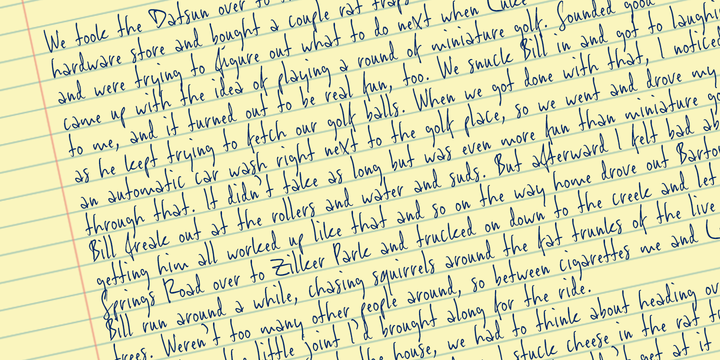 We took the Datsun over to
hardware store and bought a couple rat traps
and were trying to figure out what to do next when Luke
came up with the idea of playing a round of miniature golf. Sounded good
to me, and it turned out to be real fun, too. We snuck Bill in and got to laughi
as he kept trying to fetch our golf balls. When we got done with that, I noticed
an automatic car wash right next to the golf place, so we went and drove my
through that. It didn't take as long but was even more fun than miniature go
Bill freak out at the rollers and water and suds. But afterward I felt bad ab
getting him all worked up like that and so on the way home drove out Barto
Springs Road over to Zilker Park and trucked on down to the creek and let
Bill run around a while, chasing squirrels around the fat trunks of the live
trees. Weren't too many other people around, so between cigarettes me and
the little joint I'd brought along for the ride.
the house, we had to think about heading ov
stuck cheese in the rat t
at it